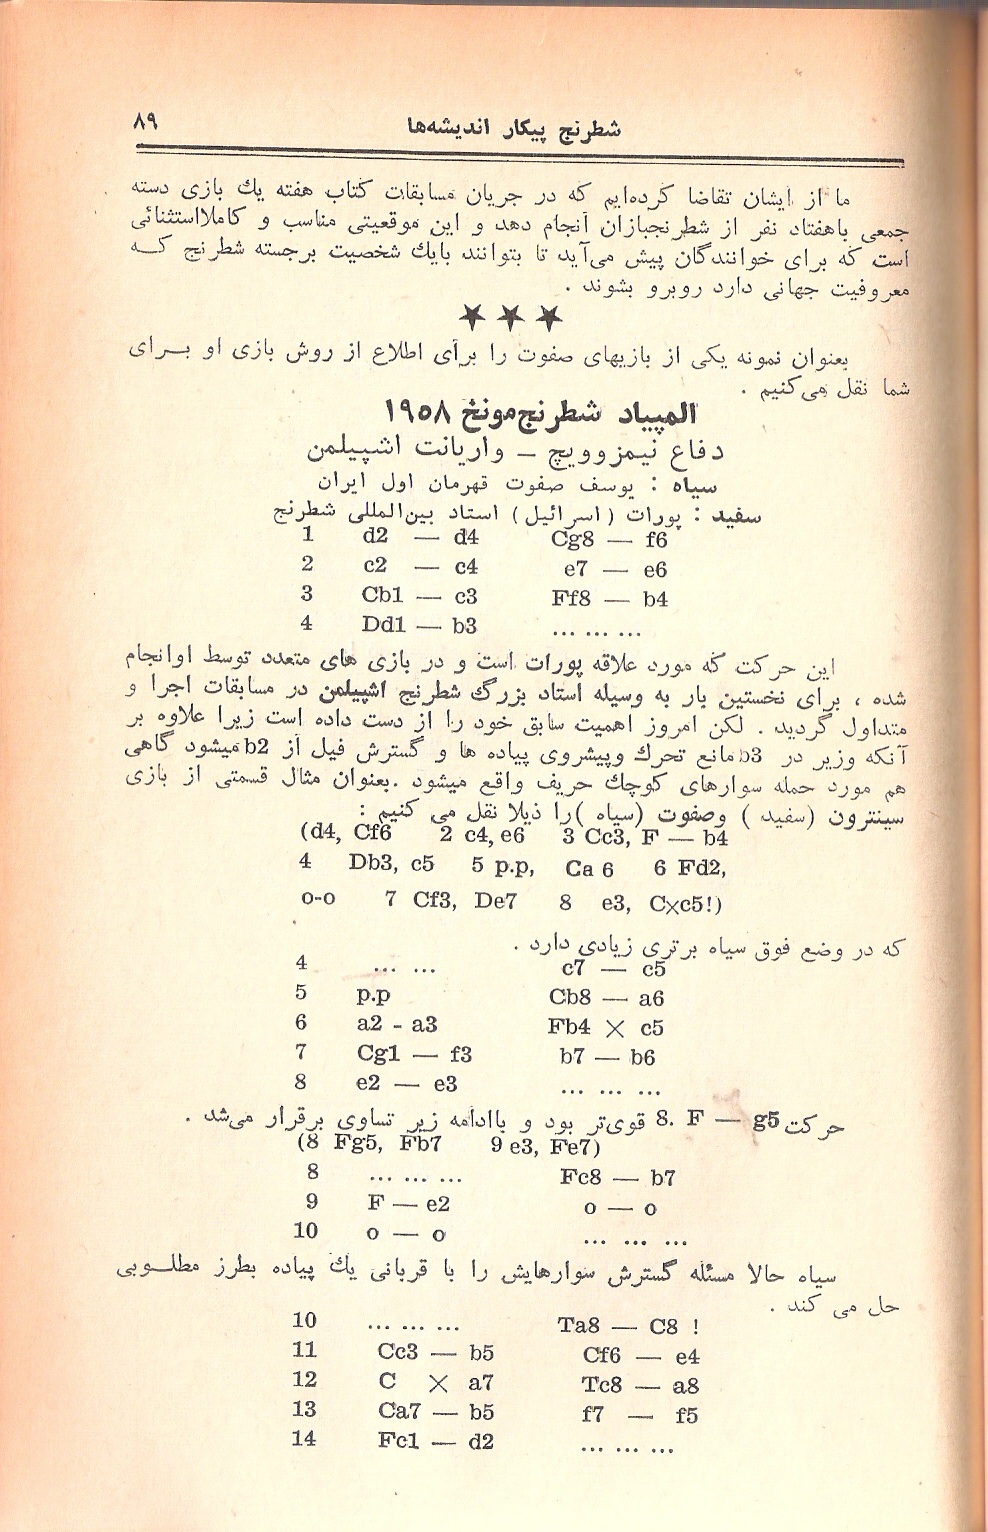 شطرنج پیکار اندیشه‌ها ۸۹
ما از ایشان تقاضا کرده‌ایم که در جریان مسابقات کتاب هفته یك بازی دسته
جمعی باهفتاد نفر از شطرنجبازان انجام دهد و این موقعیتی مناسب و کاملااستثنائی
است که برای خوانندگان پیش می‌آید تا بتوانند بایك شخصیت برجسته شطرنج کـه
معروفیت جهانی دارد روبرو بشوند .
★ ★ ★
بعنوان نمونه یکی از بازیهای صفوت را برای اطلاع از روش بازی او بـرای
شما نقل می‌کنیم .
المپیاد شطرنج‌مونخ ۱۹۵۸
دفاع نیمزوویچ ــ واریانت اشپیلمن
سیاه : یوسف صفوت قهرمان اول ایران
سفید : پورات ( اسرائیل ) استاد بین‌المللی شطرنج
1 d2 — d4 Cg8 — f6
2 c2 — c4 e7 — e6
3 Cb1 — c3 Ff8 — b4
4 Dd1 — b3 ... ... ...
این حرکت که مورد علاقه پورات است و در بازی های متعدد توسط اوانجام
شده ، برای نخستین بار به وسیله استاد بزرگ شطرنج اشپیلمن در مسابقات اجرا و
متداول گردید . لکن امروز اهمیت سابق خود را از دست داده است زیرا علاوه بر
آنکه وزیر در b3 مانع تحرك وپیشروی پیاده ها و گسترش فیل از b2 میشود گاهی
هم مورد حمله سوارهای کوچك حریف واقع میشود .بعنوان مثال قسمتی از بازی
سینترون (سفید ) وصفوت (سیاه )را ذیلا نقل می کنیم :
(d4, Cf6 2 c4, e6 3 Cc3, F — b4
4 Db3, c5 5 p.p, Ca 6 6 Fd2,
o-o 7 Cf3, De7 8 e3, C×c5!)
که در وضع فوق سیاه برتری زیادی دارد .
4 ... ... c7 — c5
5 p.p Cb8 — a6
6 a2 - a3 Fb4 × c5
7 Cg1 — f3 b7 — b6
8 e2 — e3 ... ... ...
حرکت 8. F — g5 قوی‌تر بود و باادامه زیر تساوی برقرار می‌شد .
(8 Fg5, Fb7 9 e3, Fe7)
8 ... ... ... Fc8 — b7
9 F — e2 o — o
10 o — o ... ... ...
سیاه حالا مسئله گسترش سوارهایش را با قربانی یك پیاده بطرز مطلـوبی
حل می کند .
10 ... ... ... Ta8 — C8 !
11 Cc3 — b5 Cf6 — e4
12 C × a7 Tc8 — a8
13 Ca7 — b5 f7 — f5
14 Fc1 — d2 ... ... ...